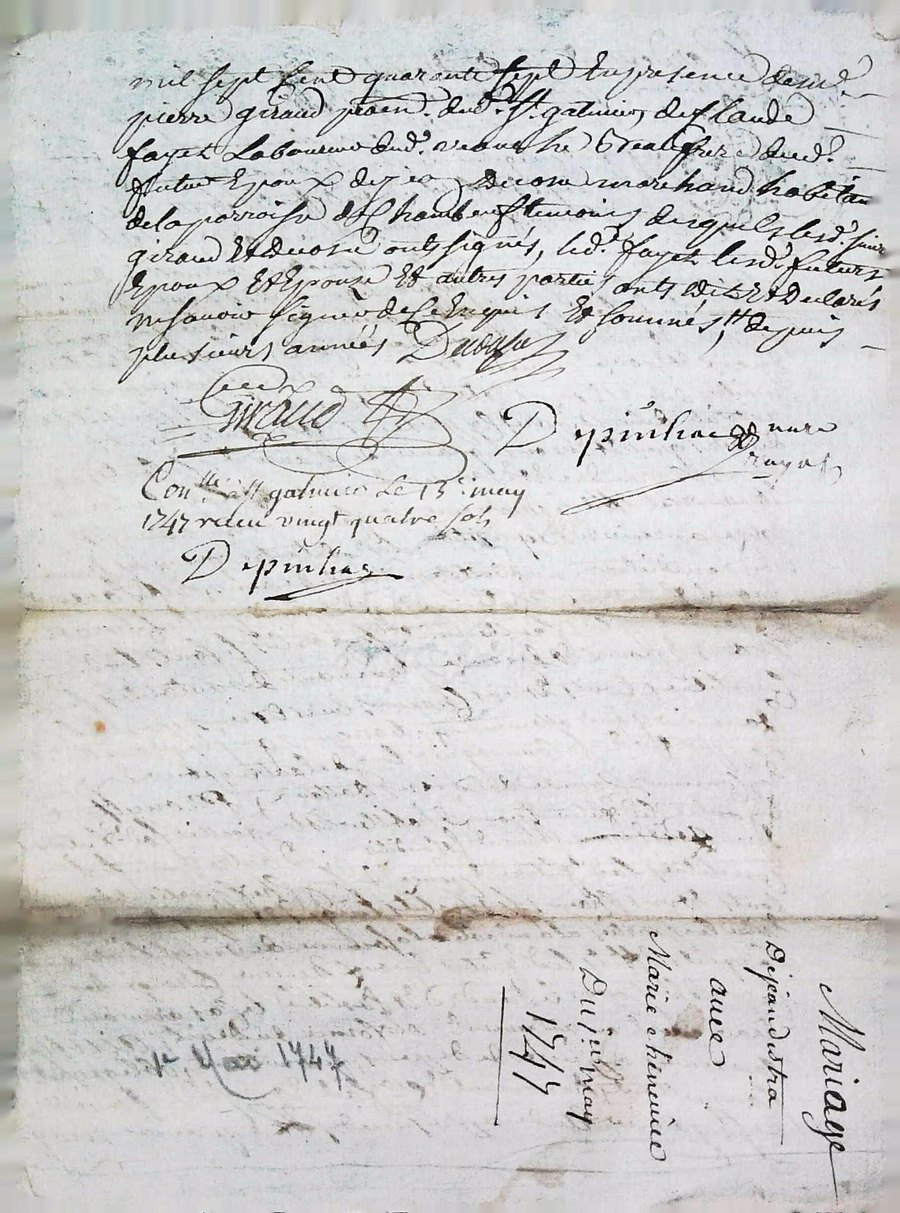 mil sept Cent quarante sept En presence de me.
pierre giraud praen. dud. St. galmier, de Claude
fayet Laboureur dud. veauche Beaufrere dud.
futur Epoux de jea Decosne marchand habitan
de la parroisse de Chambeuf temoins desquels lesd. sieurs
giraud Et decosne onts signés, led. fayet lesd. futurs
Epoux Et Epouse Et autres parties onts dit Et Declarés
ne savoir signer de Ce Enquis Et Sommés, depuis
plusieurs années
Giraud
Depinhac nore
Royal
Conllé a St galmier Le 13e may
1747 receu vingt quatre sols
Depinhac
Mariage
De jean
avec
Marie
Du may
1747
1er Mai 1747